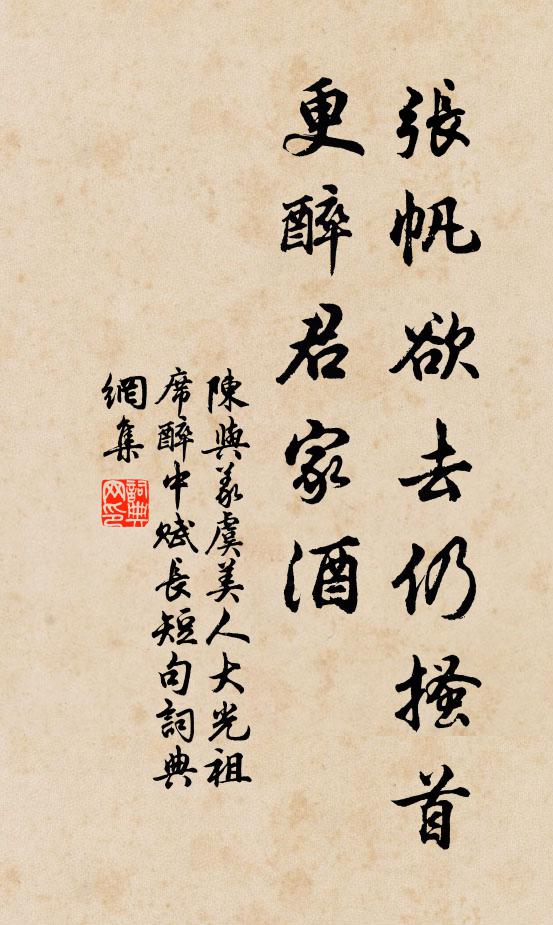 張帆欲去仍搔首
更醉君家酒
陳與義虞美人大光祖
席醉中賦長短句詞典
網集
詞典
网印